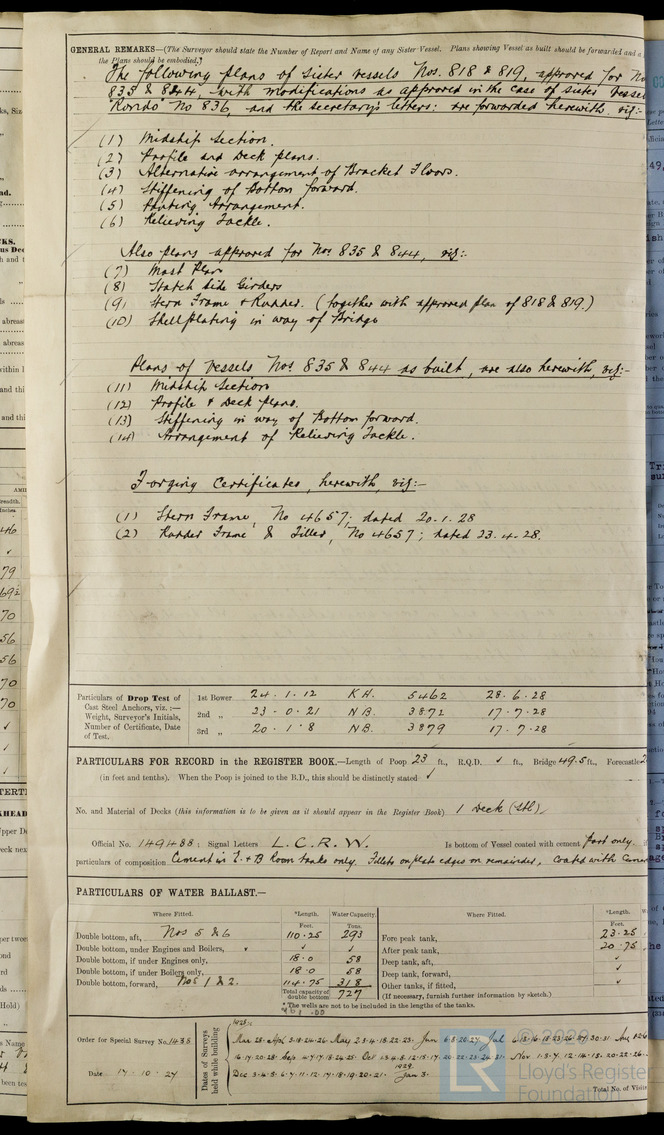 GENERAL REMARKS—(The Surveyor should state the Number of Report and Name of any Sister Vessel. Plans showing Vessel as built should be forwarded and a
the Plans should be embodied.)
The following plans of Sister vessels Nos. 818 & 819, approved for No
835 & 844, with modifications as approved in the case of sister vessel
"Rondo" No 836, and the secretary's letters: are forwarded herewith, viz:-
(1) Midship Section.
(2) Profile and Deck plans.
(3) Alternative arrangement of Bracket Floors.
(4) Stiffening of Bottom forward.
(5) Panting Arrangement.
(6) Relieving Tackle.
Also plans approved for Nos 835 & 844, viz:-
(7) Mast Plan
(8) Hatch Side Girders
(9) Stern Frame & Rudder. (together with approved plan of 818 & 819.)
(10) Shell plating in way of Bridge
Plans of Vessels Nos. 835 & 844 as built, are also herewith, viz:-
(11) Midship Section
(12) Profile & Deck Plans.
(13) Stiffening in way of Bottom forward.
(14) Arrangement of Relieving Tackle.
Forging Certificates, herewith, viz:-
(1) Stern Frame, No 4657; dated 20.1.28
(2) Rudder Frame & Tiller, No 4657; dated 23.4.28.
Particulars of Drop Test of
Cast Steel Anchors, viz. :—
Weight, Surveyor's Initials,
Number of Certificate, Date
of Test.
1st Bower 24 . 1 . 12 K.H. 5462 28 . 6 . 28
2nd „ 23 . 0 . 21 N.B. 3872 17 . 7 . 28
3rd „ 20 . 1 . 8 N.B. 3879 17 . 7 . 28
PARTICULARS FOR RECORD in the REGISTER BOOK.—Length of Poop 23 ft., R.Q.D. ✓ ft., Bridge 49.5 ft., Forecastle 2
(in feet and tenths). When the Poop is joined to the B.D., this should be distinctly stated ✓
No. and Material of Decks (this information is to be given as it should appear in the Register Book) 1 Deck (Stl)
Official No. 149488; Signal Letters L.C.R.W. Is bottom of Vessel coated with cement Part only
particulars of composition Cement in E. & B Room tanks only. Fillets on plate edges on remainder, coated with Cement
PARTICULARS OF WATER BALLAST.—
Where Fitted. *Length. Water Capacity.
Feet. Tons.
Double bottom, aft, Nos 5 & 6 110.25 293
Double bottom, under Engines and Boilers, ✓ ✓
Double bottom, if under Engines only, 18.0 58
Double bottom, if under Boilers only, 18.0 58
Double bottom, forward, Nos 1 & 2. 114.75 318
Total capacity of double bottom 727
Where Fitted. *Length.
Feet.
Fore peak tank, 23.25
After peak tank, 20.75
Deep tank, aft, ✓
Deep tank, forward, ✓
Other tanks, if fitted, ✓
(If necessary, furnish further information by sketch.)
*The wells are not to be included in the lengths of the tanks.
Order for Special Survey No. 1486
Date 17.10.27
Dates of Surveys
held while building
1928:-
1929
Jan 3.
Total No. of Visits
© 2020
LR
Lloyd's Register
Foundation